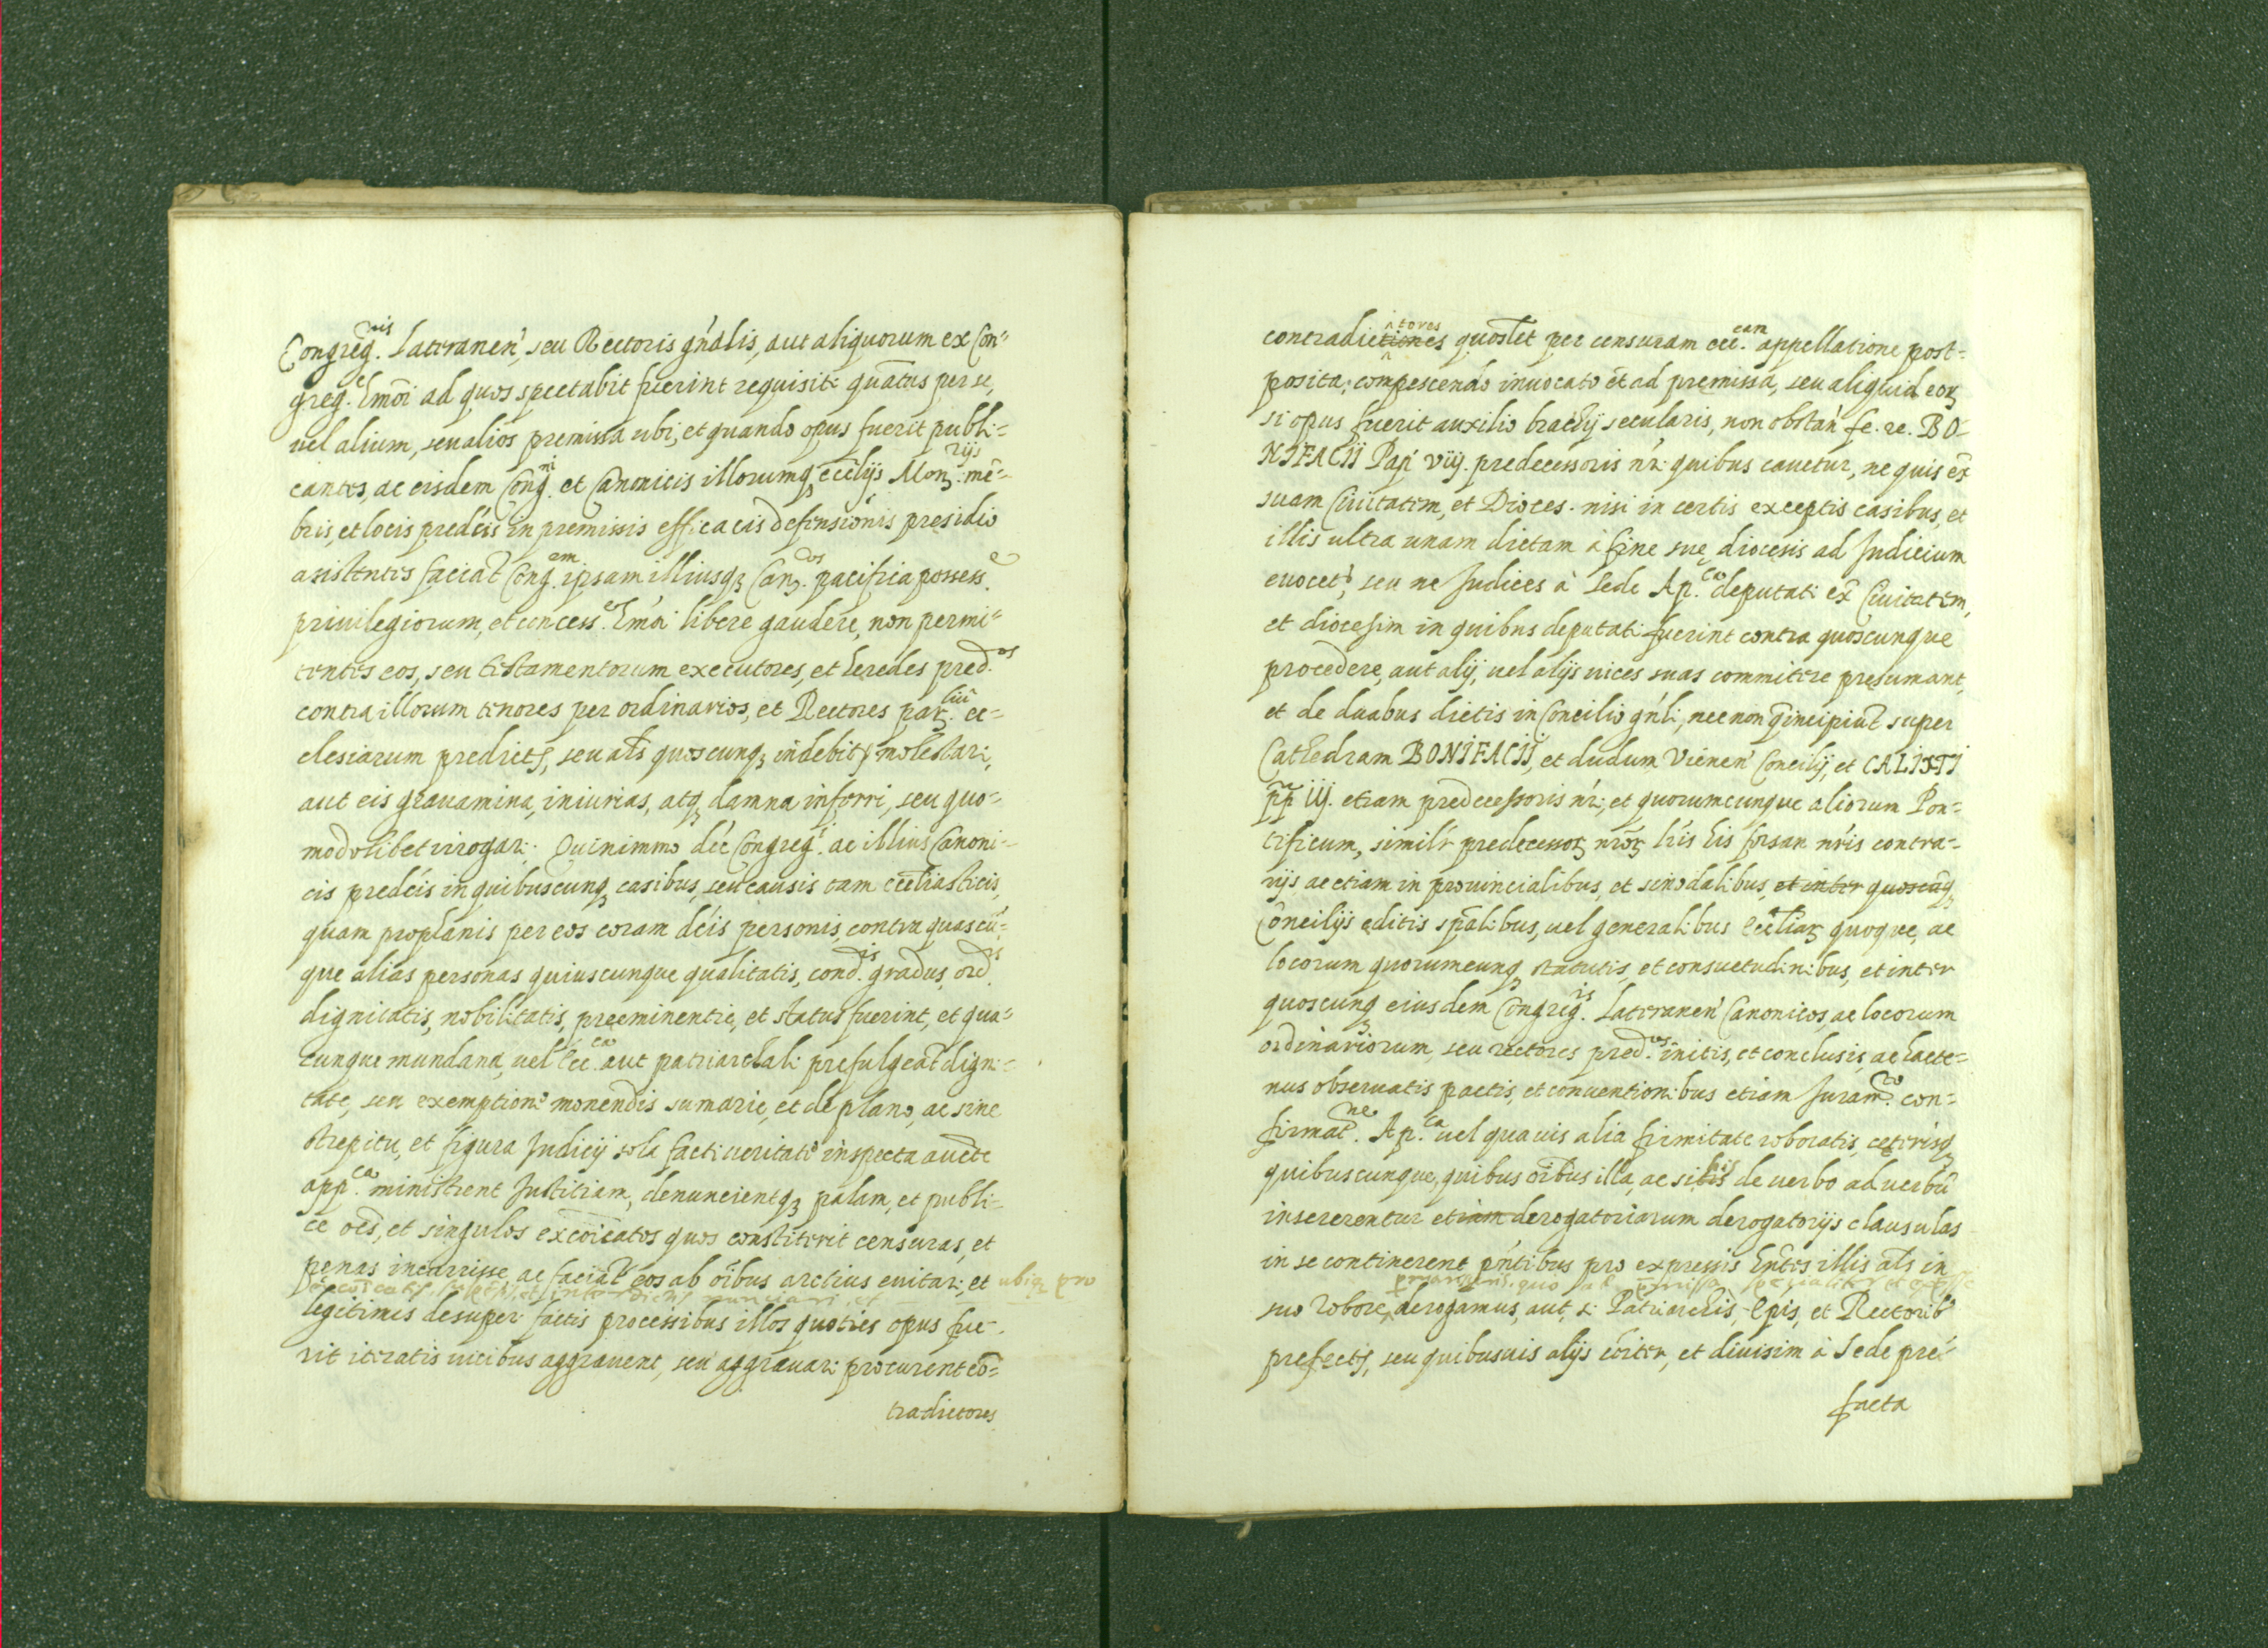 Congreg.nis Lateranen', seu Rectoris gñalis, aut aliquorum ex Con=
greg.e Emõi ad quos spectabit fuerint requisiti quãtus per se,
vel alium, seu alios premissa ubi, et quando opus fuerit publi=
cantes, ac eisdem Cong.ni et Canonicis illorumq; eccliys Monriys. mẽ=
bris, et locis predcis in premissis efficacis defensionis presidio
asistentes faciãt Cong.em ipsam illiusq; Can.cos pacifica possess.e
privilegiorum, et concess.e Emõi libere gaudere, non permi=
tentes eos, seu testamentorum executores, et heredes pred.os
contra illorum tenores per ordinarios, et Rectores par.liũ ec=
clesiarum predictz, seu als quoscunq; indebitz molestari,
aut eis gravamina, iniurias, atq; damna inferri, seu quo=
modolibet irrogari. Quinimmo dcẽ Congreg.i ac illius Canoni=
cis predcis in quibuscunq; casibus, seu causis tam eccliasticis,
quam prophanis per eos coram dcis personis, contra quascũ=
que alias personas quiuscunque qualitatis, cond.is gradus, ord.is
dignitatis, nobilitatis, preeminentie, et status fuerint, et qua=
cunque mundana, vel ecc.ca aut patriarchali prefulgeãt digni=
tate, seu exemptione monendis sumarie, et de plano, ac sine
strepitu, et figura Judicij sola facti veritate inspecta aucte
app.ca ministrent Justitiam, denuncientq; palam, et publi=
ce oẽs, et singulos excõicatos quos constiterit censuras, et
penas incurrisse, ac faciãt eos ab oĩbus arctius evitari, et ubiq; pro
excõicatis et interdictis nunciari, et
legitimis desuper factis processibus illos quoties opus fue-
rit iteratis vicibus aggravent, seu aggravari procurent cõ=
tradictores
contradictiones tores quoslet per censuram ecc.cam appellatione post=
posita; compescendo invocato et ad premissa, seu aliquid eor;
si opus fuerit auxilio brachij secularis, non obstañ fe. re. BO=
NIFACII Pap' viij. predecessoris nr̃i quibus cavetur, ne quis ex̃
suam Civitatem, et Dioces. nisi in certis exceptis casibus, et
illis ultra unam dietam à fine sue diocesis ad Judicium
evocet; seu ne Judices à Sede Ap.ca deputati ex̃ Civitatem,
et diocesim in quibus deputati fuerint contra quoscunque
procedere, aut alij, vel alijs vices suas commitere presumant,
et de duabus dietis in Concilio gñli, necnon q̃ incipiũt super
Cathedram BONIFACII, et dudum Vienen' Concilij, et CALIXTI
pp iij. etiam predecessoris nr̃i, et quorumcunque aliorum Pon=
tificum, similr predecessor; nrõr; lris his forsan nris contra=
rijs ac etiam in provincialibus, et sinodalibus, et inter quoscũq;
Concilijs editis spalibus, vel generalibus eccliar; quoque, ac
locorum quorumcunq; statutis, et consuetudinibus, et inter
quoscunq; eiusdem Congreg.is Lateranen' Canonicos, ac locorum
ordinariorum, seu rectores pred.os initis, et conclusis, ac hacte=
nus observatis pactis, et conventionibus etiam Juram.to con=
firmat.ne Ap.ca vel quavis alia firmitate roboratis, ceterisq;
quibuscunque, quibus oĩbus illa, ac si his de verbo ad verbũ
insererentur etiam derogatoriarum derogatorijs clausulas
in se continerent pñtibus pro expressis hñtes illis als in
permansuris, quo ad premissa specialiter et expresse
suo robore, derogamus, aut si Patriarchis, Epis, et Rectorib'
prefectz, seu quibusvis alijs cõiter, et divisim à Sede pre=
facta